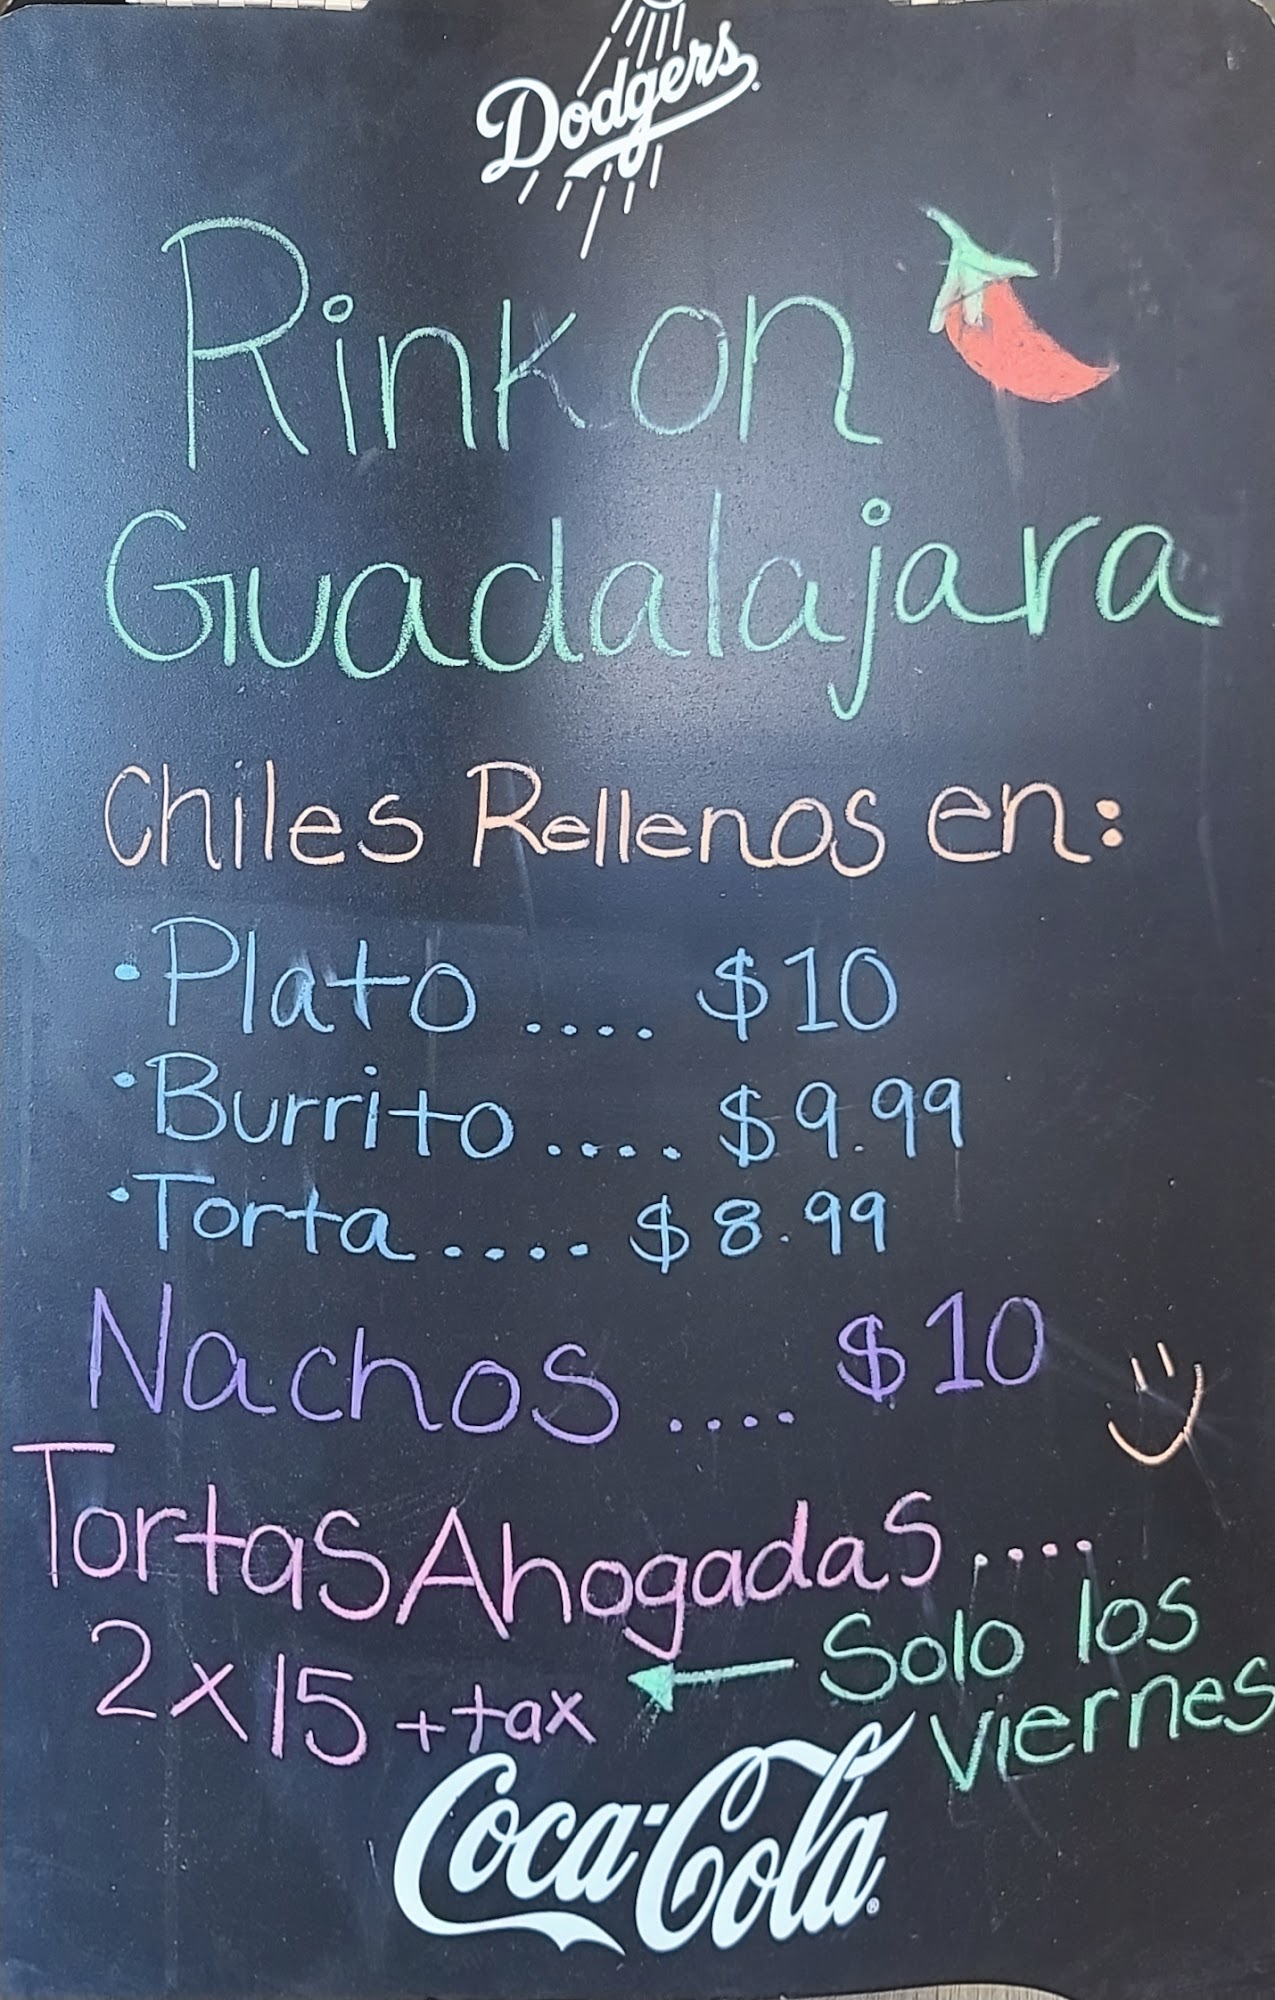 Dodgers
Rinkon
Guadalajara
Chiles Rellenos en:
• Plato .... $10
• Burrito .... $9.99
• Torta .... $8.99
Nachos .... $10
Tortas Ahogadas ....
2 x 15 + tax ← Solo los
viernes
Coca-Cola®